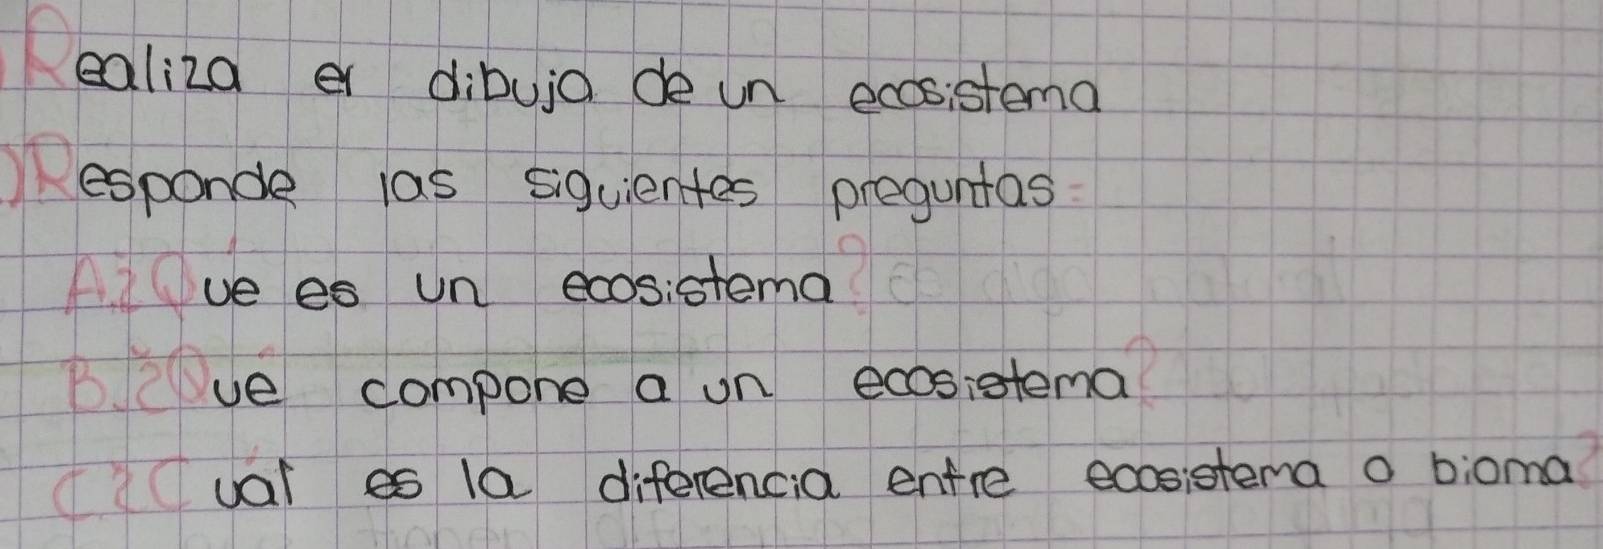 Realiza el dibujo de un ecosistema
)Responde las siguientes preguntas:
A. ¿Qué es un ecosistema?
B. ¿Qué compone a un ecosistema?
C. ¿Cuál es la diferencia entre ecosistema o bioma?